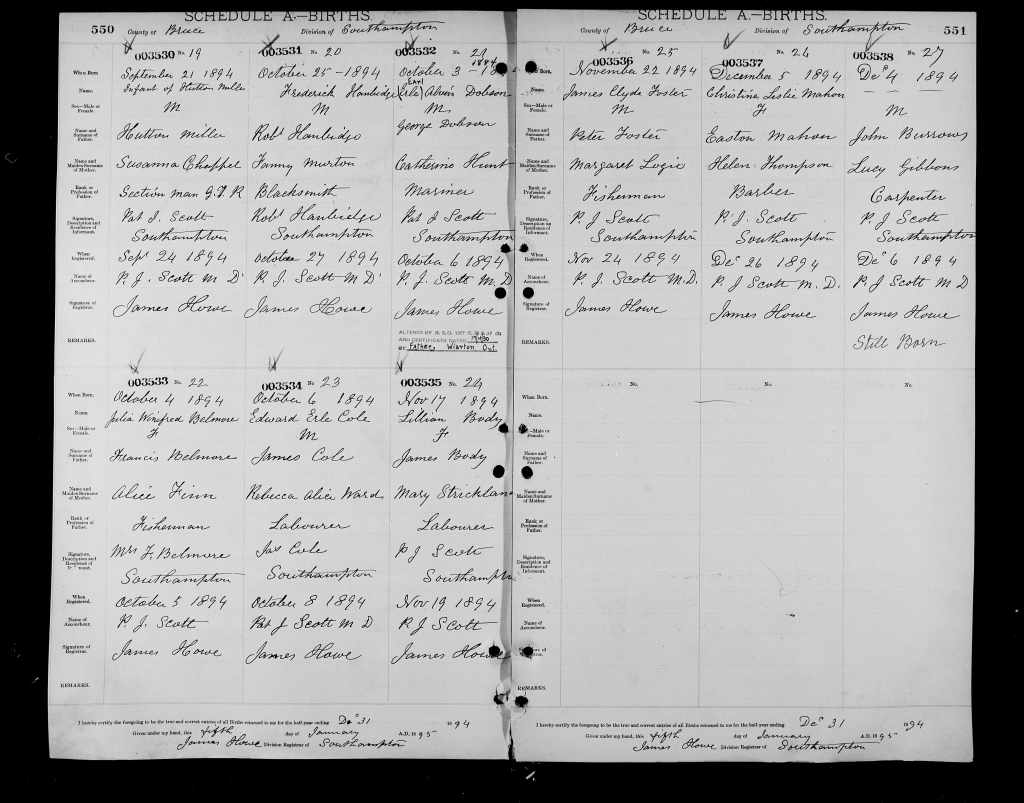 550
SCHEDULE A.—BIRTHS.
County of Bruce Division of Southampton
003530 No. 19
When Born. September 21 1894
Name. Infant of Hutton Miller
Sex—Male or Female. M
Name and Surname of Father. Hutton Miller
Name and Maiden Surname of Mother. Susanna Chappel
Rank or Profession of Father. Section man G.T.R
Signature, Description and Residence of Informant. Pat J. Scott
Southampton
When Registered. Sept 24 1894
Name of Accoucheur. P. J. Scott M.D.
Signature of Registrar. James Howe
REMARKS.
003531 No. 20
October 25 - 1894
Frederick Hanbidge
M
Robt Hanbidge
Fanny Murton
Blacksmith
Robt Hanbridge
Southampton
October 27 1894
P. J. Scott M.D.
James Howe
003532 No. 21
1894
October 3 -
Earl
Erle Alvin Dobson
M
George Dobson
Catherine Hunt
Mariner
Pat J Scott
Southampton
October 6 1894
P. J. Scott M.D
James Howe
Father, Wiarton Ont.
003533 No. 22
When Born. October 4 1894
Name. Julia Winifred Belmore
Sex—Male or Female. F
Name and Surname of Father. Francis Belmore
Name and Maiden Surname of Mother. Alice Finn
Rank or Profession of Father. Fisherman
Signature, Description and Residence of Informant. Mrs F. Belmore
Southampton
When Registered. October 5 1894
Name of Accoucheur. P. J. Scott
Signature of Registrar. James Howe
REMARKS.
003534 No. 23
October 6 1894
Edward Erle Cole
M
James Cole
Rebecca Alice Ward
Labourer
Jas Cole
Southampton
October 8 1894
Pat J Scott M D
James Howe
003535 No. 24
Nov 17 1894
Lillian Body
F
James Body
Mary Strickland
Labourer
P J Scott
Southampton
Nov 19 1894
P J Scott
James Howe
I hereby certify the foregoing to be the true and correct entries of all Births returned to me for the half-year ending Dec 31 1894
Given under my hand, this fifth day of January A.D. 1895
James Howe Division Registrar of Southampton
551
SCHEDULE A.—BIRTHS.
County of Bruce Division of Southampton
003536 No. 25
When Born. November 22 1894
Name. James Clyde Foster
Sex—Male or Female. M
Name and Surname of Father. Peter Foster
Name and Maiden Surname of Mother. Margaret Logie
Rank or Profession of Father. Fisherman
Signature, Description or Residence of Informant. P. J Scott
Southampton
When Registered. Nov 24 1894
Name of Accoucheur. P. J. Scott M.D.
Signature of Registrar. James Howe
REMARKS.
003537 No. 26
December 5 1894
Christina Leslie Mahon
F
Easton Mahon
Helen Thompson
Barber
P. J. Scott
Southampton
Dec 26 1894
P. J Scott M.D.
James Howe
003538 No. 27
Dec 4 1894
— — —
M
John Burrows
Lucy Gibbons
Carpenter
P. J Scott
Southampton
Dec 6 1894
P. J Scott M D
James Howe
Still Born
No. No. No.
When Born.
Name.
Sex—Male or Female.
Name and Surname of Father.
Name and Maiden Surname of Mother.
Rank or Profession of Father.
Signature, Description and Residence of Informant.
When Registered.
Name of Accoucheur.
Signature of Registrar.
REMARKS.
I hereby certify the foregoing to be the true and correct entries of all Births returned to me for the half-year ending Dec 31 1894
Given under my hand, this fifth day of January A.D. 1895
James Howe Division Registrar of Southampton